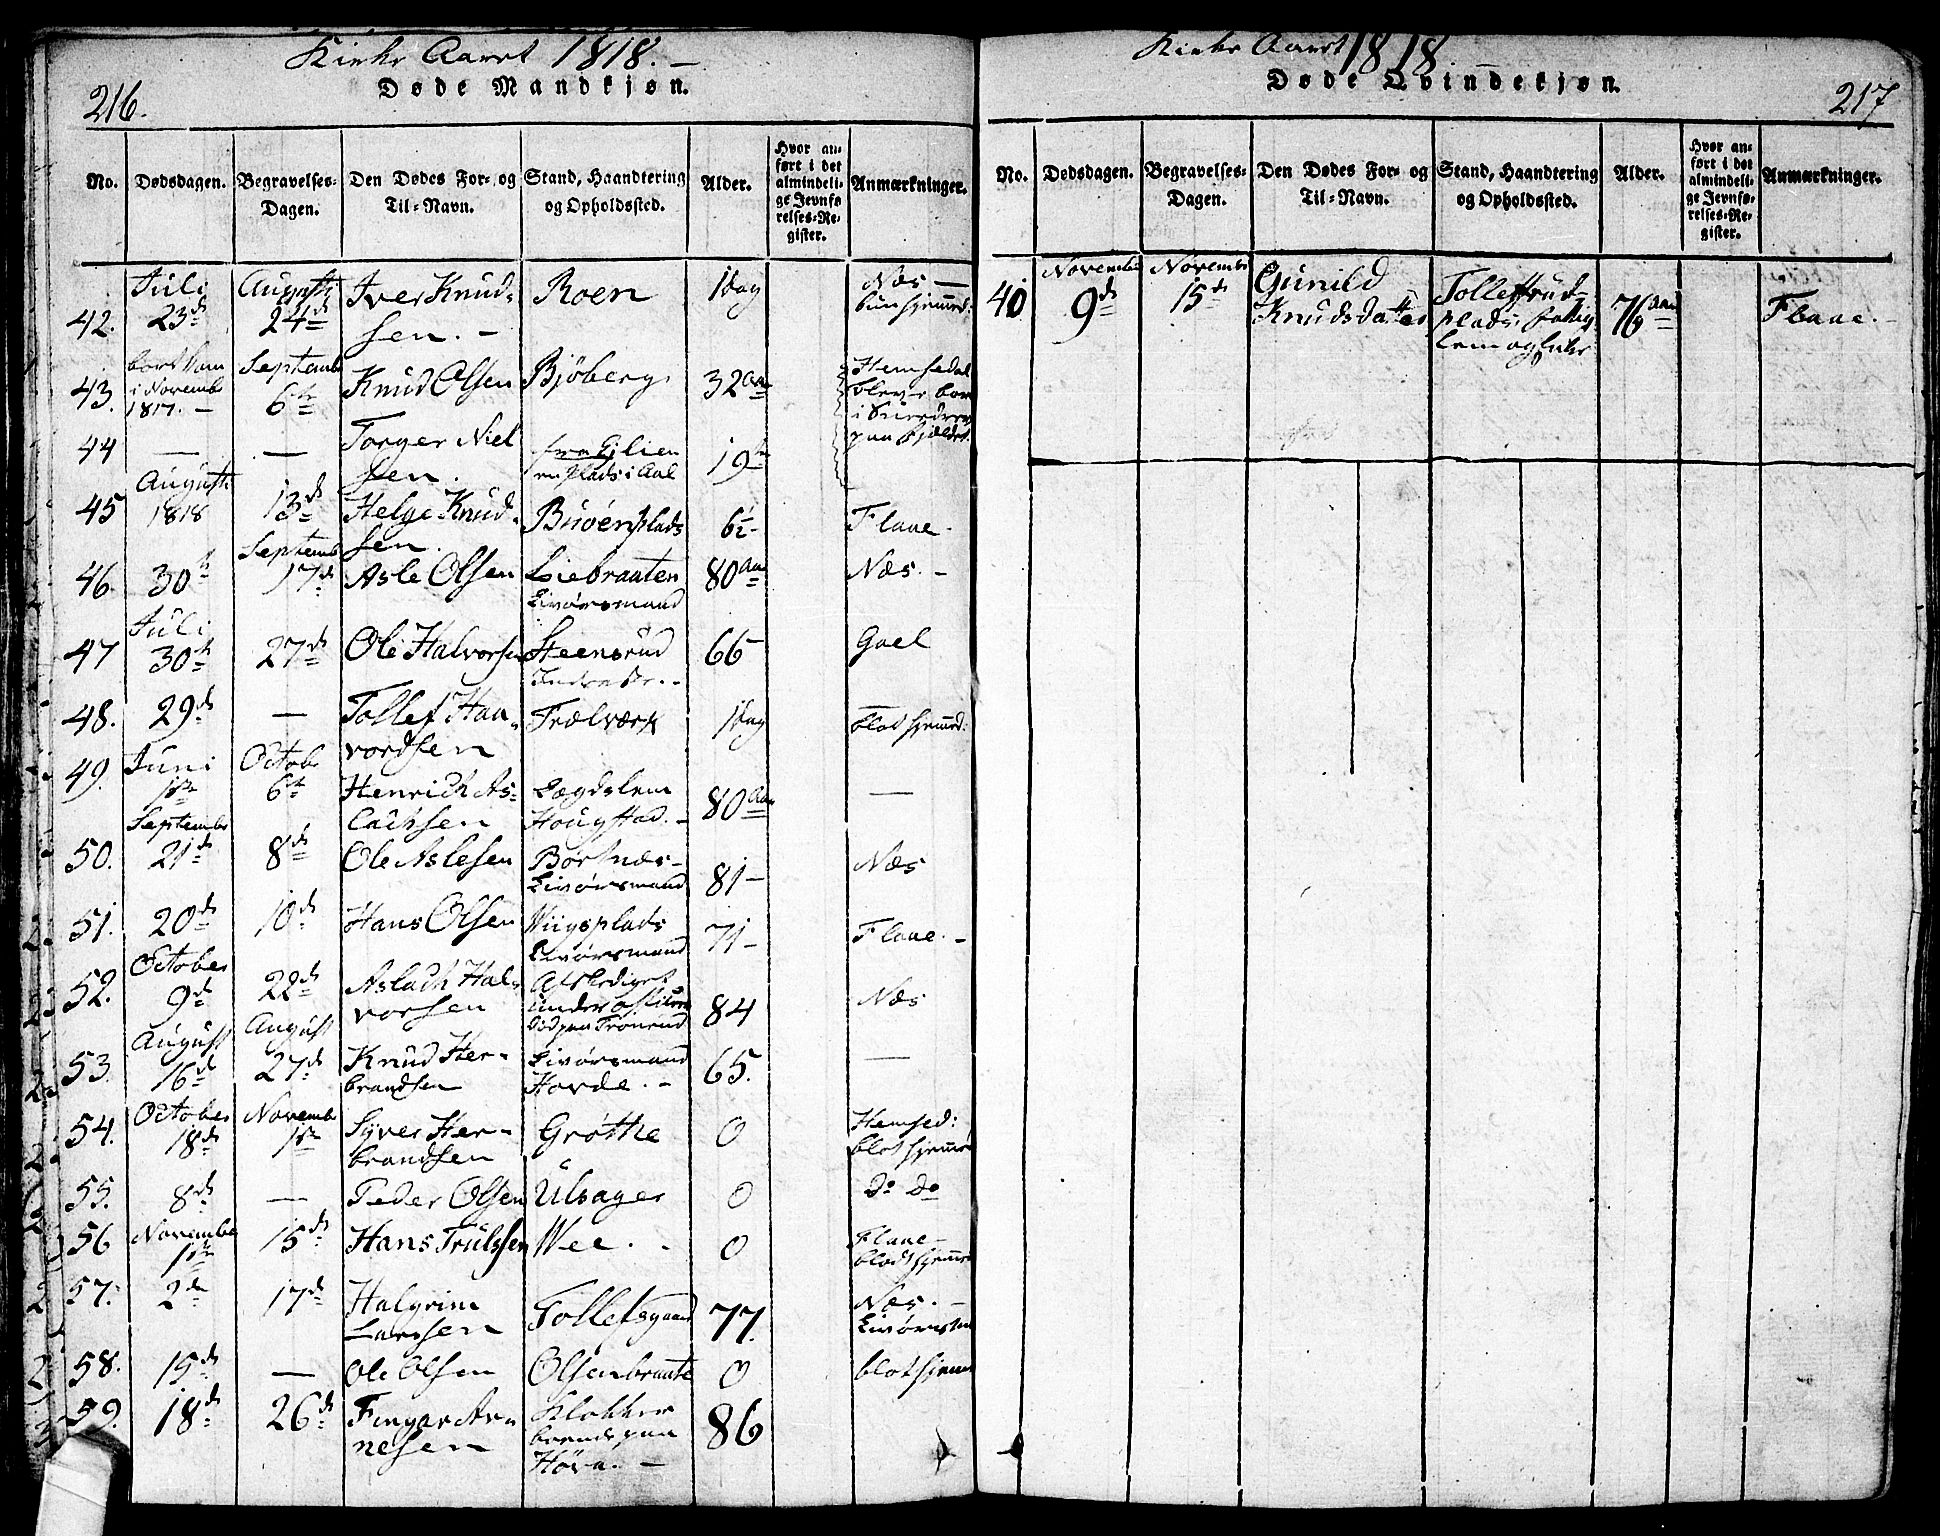 Kirke Aaret 1818. —
216.
Døde Mandkjøn.
No. Dødsdagen. Begravelses-Dagen. Den Dødes For- og Til-Navn. Stand, Haandtering og Opholdssted. Alder. Hvor anført i det almindelige Jevnførelses-Register. Anmærkninger.
42. Juli 23d August 24d Iver Knudsen. — Roen 1 dag Næs —
43. bort kom i Novemb 1817. — Septemb 6te Knud Olsen Bjöberg 32 Hemsedal
44 — — Torger Nielsen. fra Plads i Aal 19
45 August 1818 13d Helge Knudsen. Büöenplads 6½ Flaae.
46. 30 Septemb 17d Asle Olsen Liebraaten Livörsmand 80 Næs. —
47 Juli 30 27d Ole Halvorsen Steensrud 66 Goel
48. 29d — Tollef Haavordsen Trælværk 1 dag — blot hjemmed:
49. Juni 1ste Octobr 6te Henrich Aslachsen Lægdslem Hougstad. — 80 —
50. Septembr 21d 8d Ole Aslesen Börtnæs — Livörsmand 81 — Næs
51. 20d 10d Hans Olsen Wiigsplads Livörsmand 71 — Flaae. —
52. October 9d 22d Aslach Halvorsen Afskediget död paa Tronrud 84 Næs
53. August 16d August 27d Knud Herbrandsen Livörsmand Hovde. — 65. —
54. October 18d Novemb 1ste Syver Herbrandsen Gröthe 0 Hemsed: blot hjemmed
55. 8d — Peder Olsen Ulsager 0 Do Do
56 Novembr 1ste 15d Hans Trulssen Wee. 0 Flaae — blot hjemmed
57. 2den 17d Halgrim Larssen Tollefsgaard 77. Næs. —
58. 15d — Ole Olsen Olsenbraate 0 blot hjemm
59. 18d 26d Fingar Arnesen Klokker boende paa Höva. — 86
Kirke Aaret 1818
217
Døde Qvindekjøn.
No. Dødsdagen. Begravelses-Dagen. Den Dødes For- og Til-Navn. Stand, Haandtering og Opholdssted. Alder. Hvor anført i det almindelige Jevnførelses-Register. Anmærkninger.
40 Novembr 9d Novembr 15d Gunild Knudsdatter Tolleffrud-plads, 76 Flaae. —